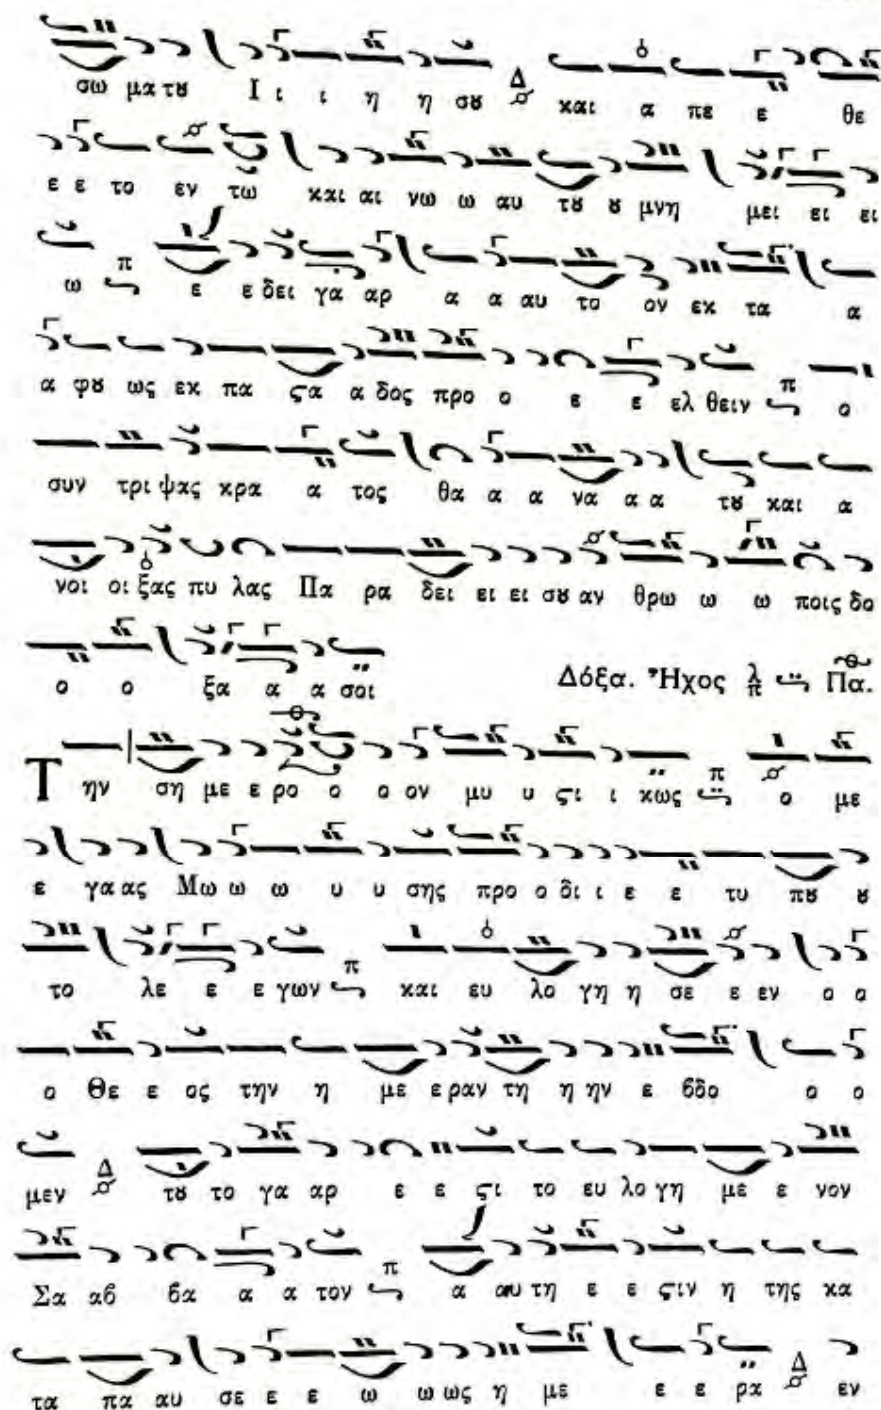 σω μα τȣ Ι ι ι η η σȣ Δ και α πε ε θε
ε ε το εν τω και αι νω ω αυ τȣ ȣ μνη μει ει ει
ω π ε ε δει γα αρ α α αυ το ον εκ τα α
α φȣ ως εκ πα ϛα α δος προ ο ε ε ελ θειν π ο
συν τρι ψας κρα α τος θα α α να α α τȣ και α
νοι οι ξας πυ λας Πα ρα δει ει ει σȣ αν θρω ω ω ποις δο
ο ο ξα α α σοι Δόξα. Ἦχος λ π Πα.
Την ση με ε ρο ο ο ον μυ υ ϛι ι κως π ο με
ε γα ας Μω ω ω υ υ σης προ ο δι ι ε ε τυ πȣ ȣ
το λε ε ε γων π και ευ λο γη η σε ε εν ο ο
ο Θε ε ος την η με ε ραν τη η ην ε βδο ο ο
μεν Δ τȣ το γα αρ ε ε ϛι το ευ λο γη με ε νον
Σα αβ βα α α τον π α αυ τη ε ε ϛιν η της κα
τα πα αυ σε ε ε ω ω ως η με ε ε ρα Δ εν